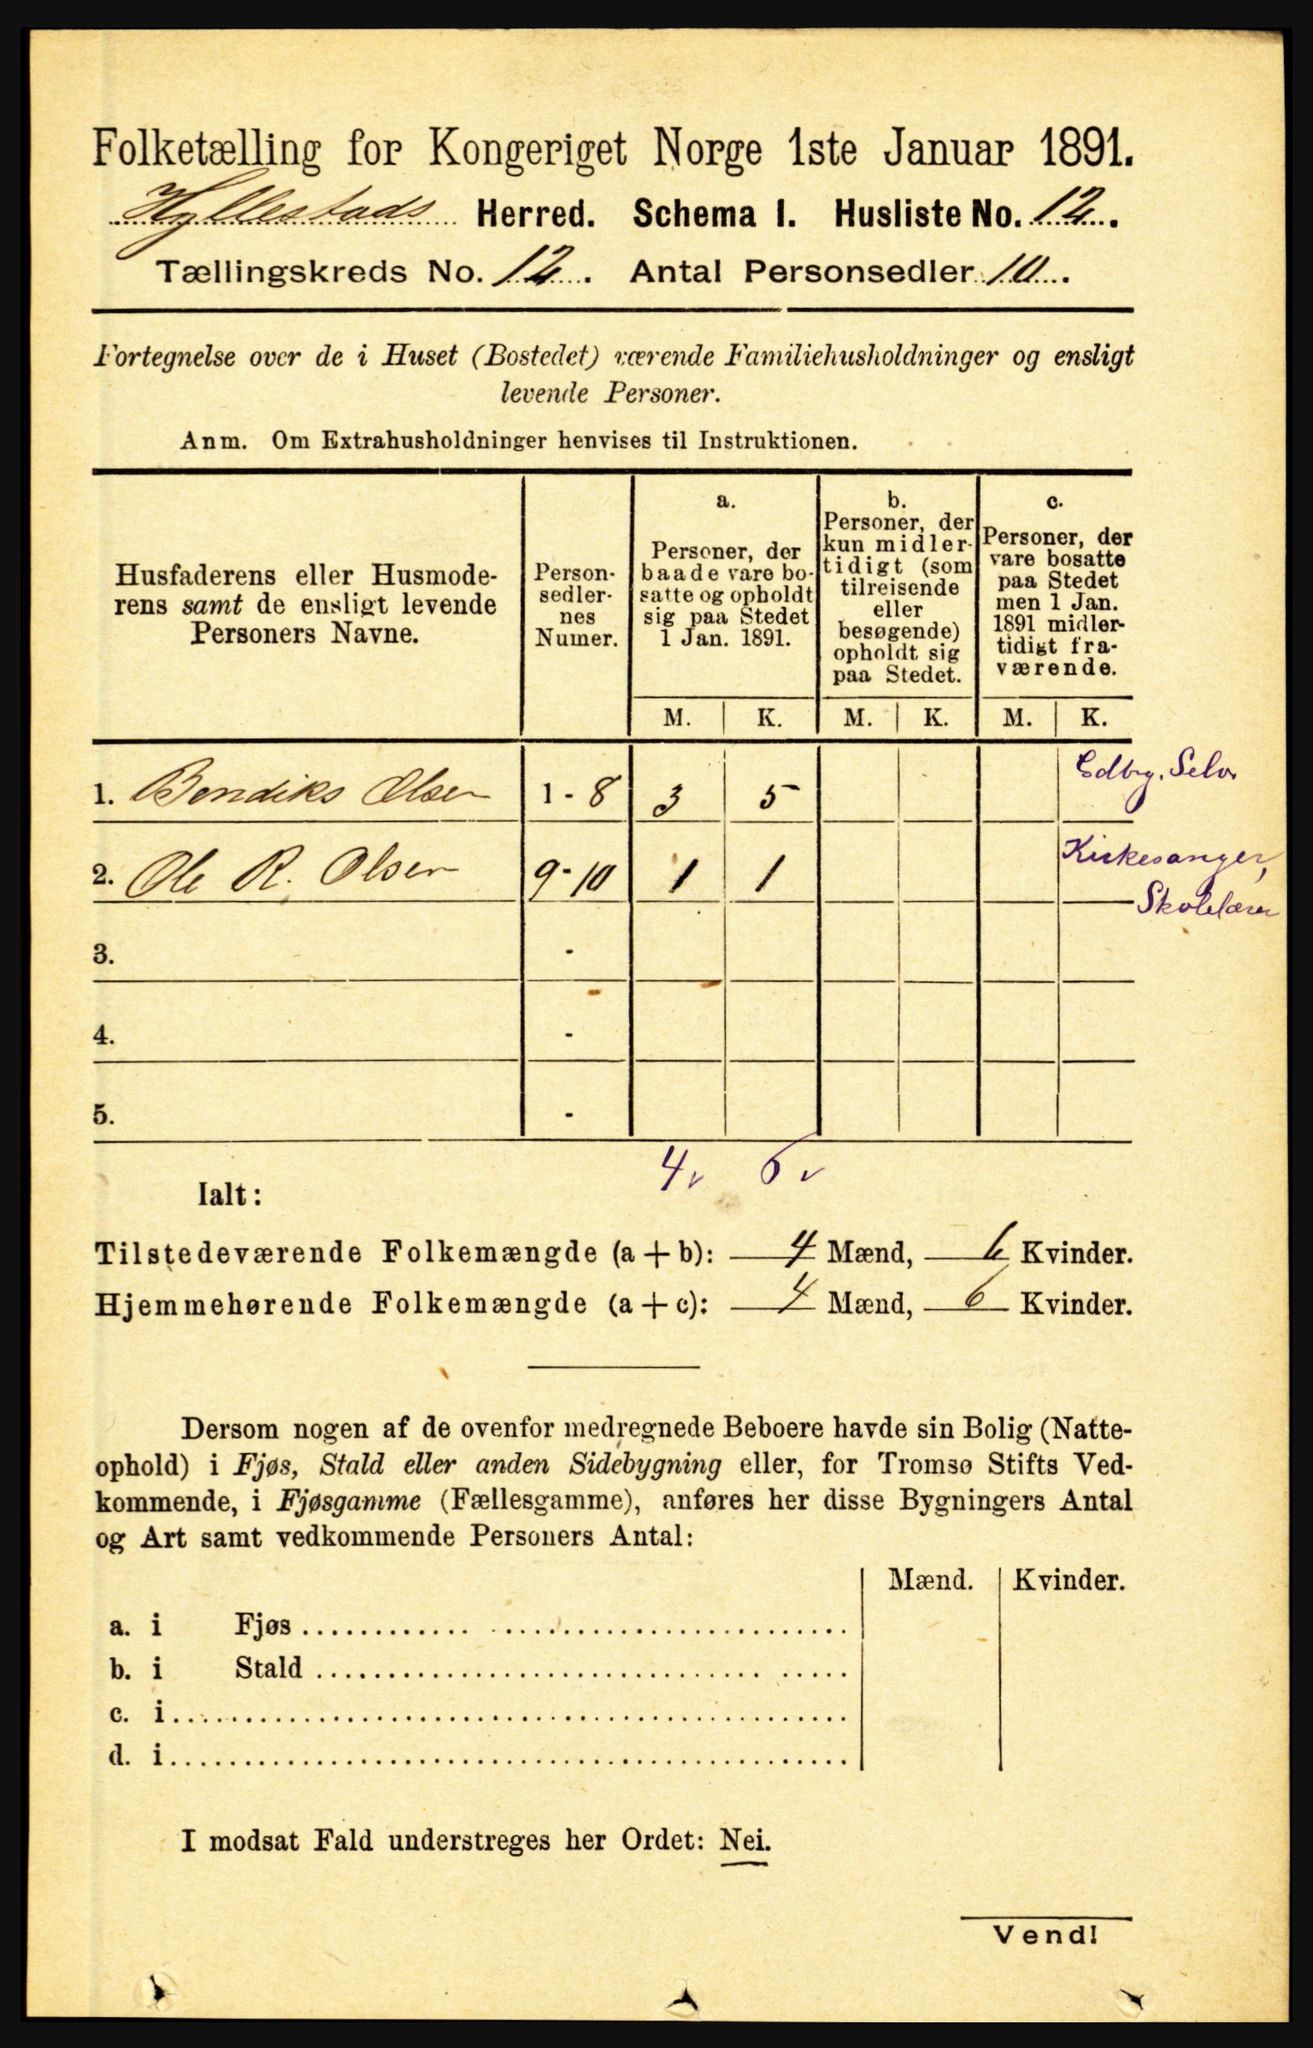 Folketælling for Kongeriget Norge 1ste Januar 1891.
Hyllestads Herred. Schema I. Husliste No. 12.
Tællingskreds No. 12. Antal Personsedler 10.
Fortegnelse over de i Huset (Bostedet) værende Familiehusholdninger og ensligt
levende Personer.
Anm. Om Extrahusholdninger henvises til Instruktionen.
Husfaderens eller Husmode-
rens samt de ensligt levende
Personers Navne.
Person-
sedler-
nes
Numer.
a.
Personer, der
baade vare bo-
satte og opholdt
sig paa Stedet
1 Jan. 1891.
b.
Personer, der
kun midler-
tidigt (som
tilreisende
eller
besøgende)
opholdt sig
paa Stedet.
c.
Personer, der
vare bosatte
paa Stedet
men 1 Jan.
1891 midler-
tidigt fra-
værende.
M. K. M. K. M. K.
1. Bendiks Olsen 1 - 8 3 5 Gdbr, Selv
2. Ole R. Olsen 9-10 1 1 Kirkesanger,
Skolelærer
3. -
4. -
5. -
4 6
Ialt:
Tilstedeværende Folkemængde (a + b): 4 Mænd, 6 Kvinder.
Hjemmehørende Folkemængde (a + c): 4 Mænd, 6 Kvinder.
Dersom nogen af de ovenfor medregnede Beboere havde sin Bolig (Natte-
ophold) i Fjøs, Stald eller anden Sidebygning eller, for Tromsø Stifts Ved-
kommende, i Fjøsgamme (Fællesgamme), anføres her disse Bygningers Antal
og Art samt vedkommende Personers Antal:
Mænd. Kvinder.
a. i Fjøs
b. i Stald
c. i
d. i
I modsat Fald understreges her Ordet: Nei.
Vend!